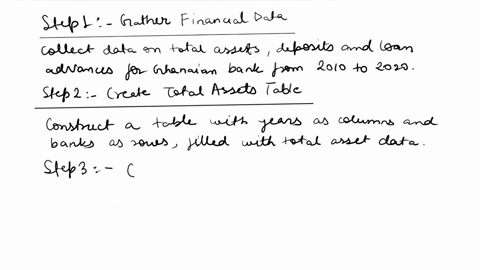 Step1:- Gather Financial Data
collect data on total assets, deposits and loan
advances for Ghanaian bank from 2010 to 2020.
Step2:- Create Total Assets Table
Construct a table with years as columns and
banks as rows, filled with total asset data.
Step3:- C